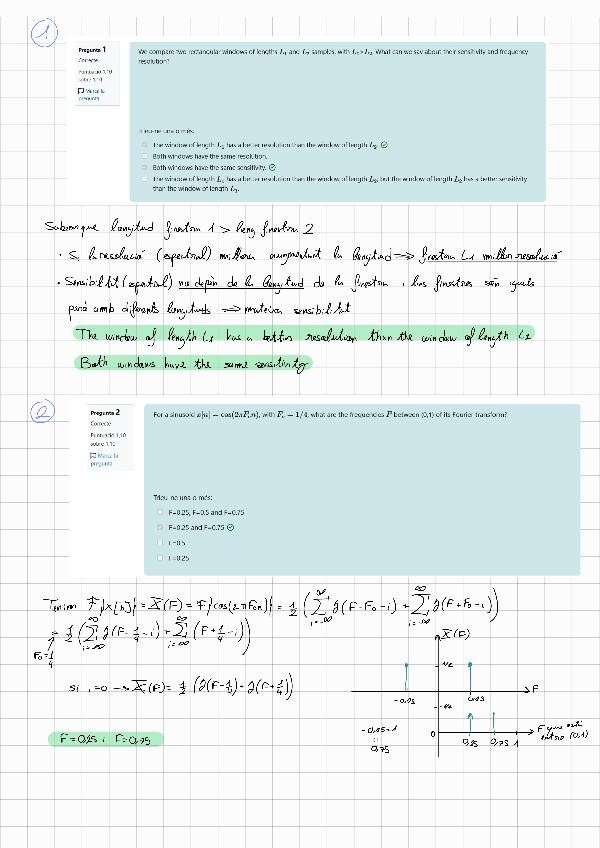 1
Pregunta 1
Correcte
Puntuació 1,10
sobre 1,10
Marca la
pregunta
We compare two rectangular windows of lengths L₁ and L₂ samples, with L₁>L₂. What can we say about their sensitivity and frequency
resolution?
Trieu-ne una o més:
The window of length L₁ has a better resolution than the window of length L₂.
Both windows have the same resolution.
Both windows have the same sensitivity.
The window of length L₁ has a better resolution than the window of length L₂, but the window of length L₂ has a better sensitivity
than the window of length L₁.
Sabem que longitud finestra 1 > long finestra 2
· Si la resolució (espectral) millora augmentant la longitud ⟹ finestra L₁ millor resolució
· Sensibilitat (espectral) no depèn de la longitud de la finestra, les finestres són iguals
però amb diferents longituds ⟹ mateixa sensibilitat
The window of length L₁ has a better resolution than the window of length L₂
Both windows have the same sensitivity
2
Pregunta 2
Correcte
Puntuació 1,10
sobre 1,10
Marca la
pregunta
For a sinusoid x[n] = cos(2πFₒn), with Fₒ = 1/4, what are the frequencies F between (0,1) of its Fourier transform?
Trieu-ne una o més:
F=0.25, F=0.5 and F=0.75
F=0.25 and F=0.75
F=0.5
F=0.25
Tenim F{x[n]} = X(F) = F{cos(2πF₀n)} = 1/2 (∑ δ(F-F₀-i) + ∑ δ(F+F₀-i))
= 1/2 (∑ δ(F-1/4-i) + ∑ (F+1/4-i))
F₀=1/4
X(F)
si i=0 → X(F) = 1/2 (δ(F-1/4)+δ(F+1/4))
1/2
F
-0.25
0.25
1/2
-0.25+1
0.75
0
0.25
0.75
1
F que està
entre (0,1)
F=0.25 i F=0.75